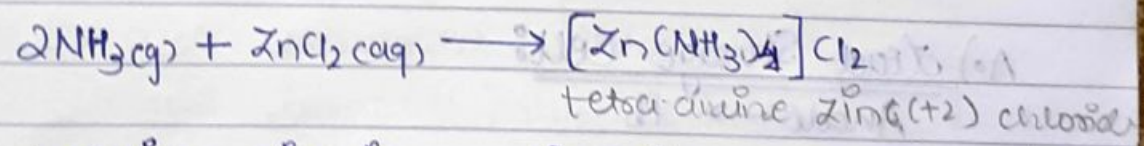 2NH3(g) + ZnCl2(aq) ⟶ [Zn(NH3)4]Cl2
tetra amine zinc (+2) chloride